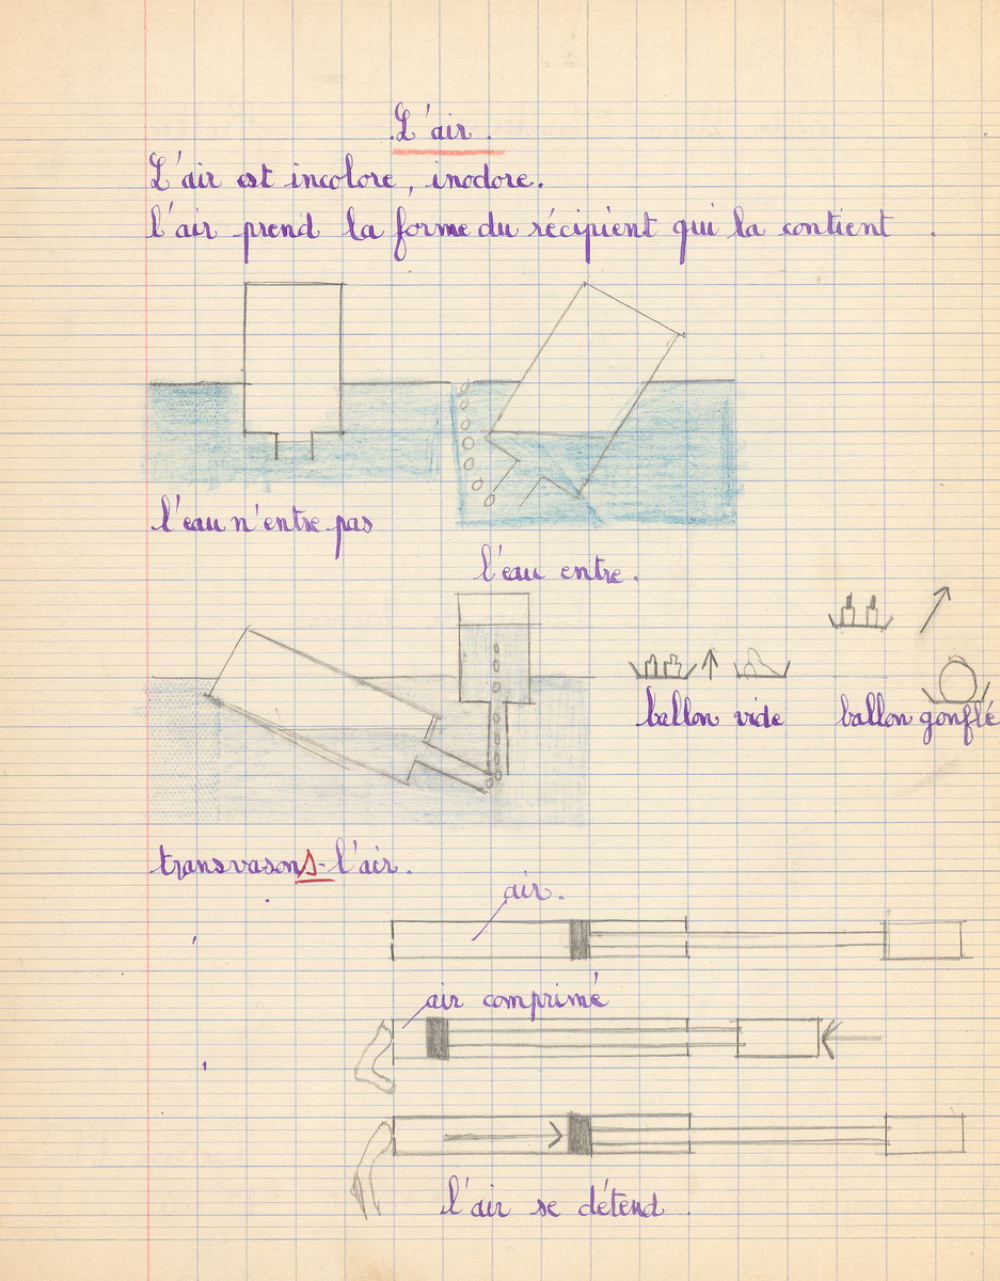 L'air.
L'air est incolore, inodore.
l'air prend la forme du récipient qui la contient.
l'eau n'entre pas
l'eau entre.
ballon vide
ballon gonflé
transvasons-l'air.
air.
air comprimé
l'air se détend.